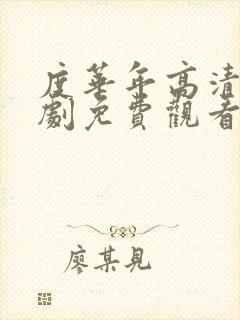 度華年高清
劇免費觀看
廖某見